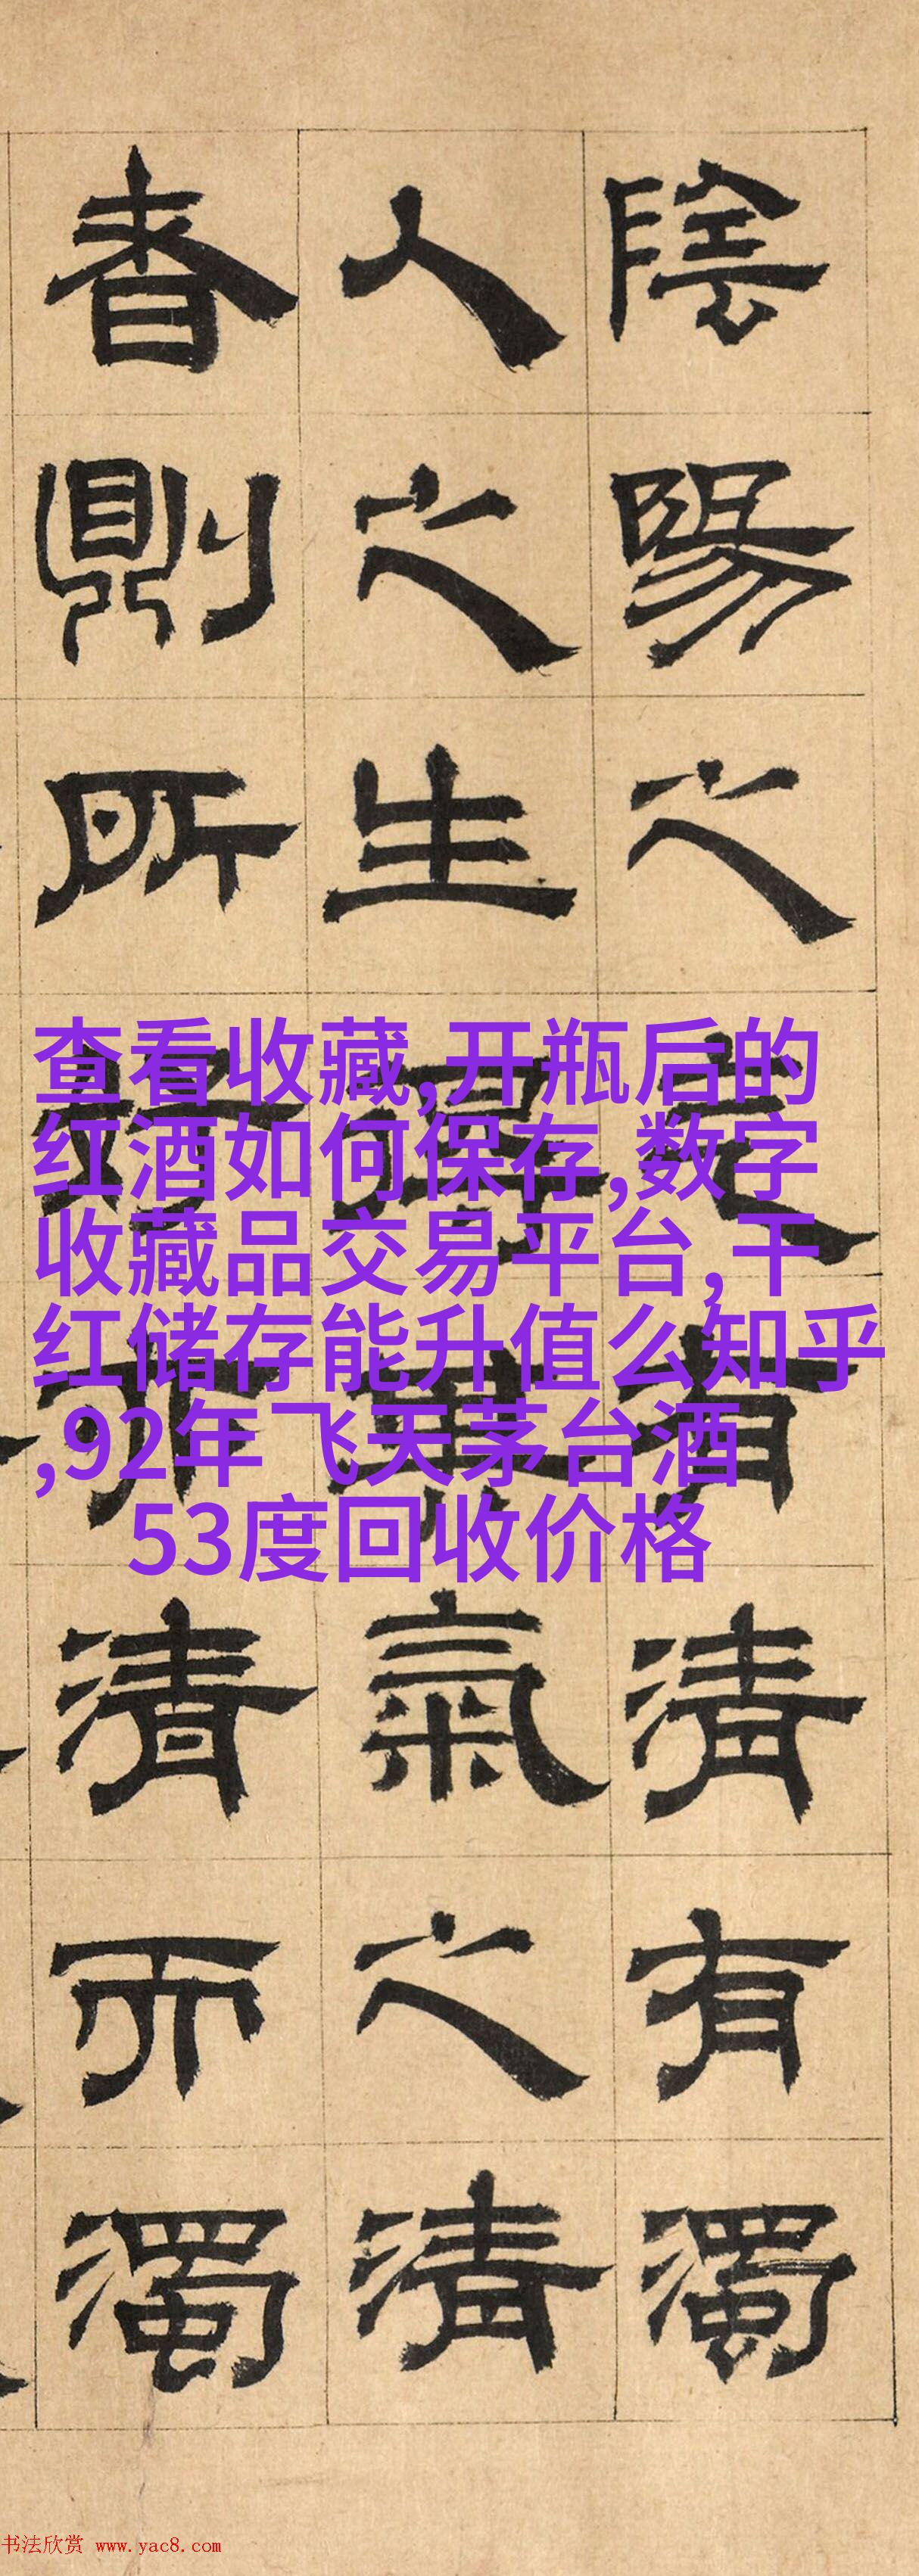 陰陽之有清有濁
人之生氣之清
者則所清而濁
查看收藏,开瓶后的
红酒如何保存,数字
收藏品交易平台,干
红储存能升值么知乎
,92年飞天茅台酒
53度回收价格
书法欣赏 www.yac8.com